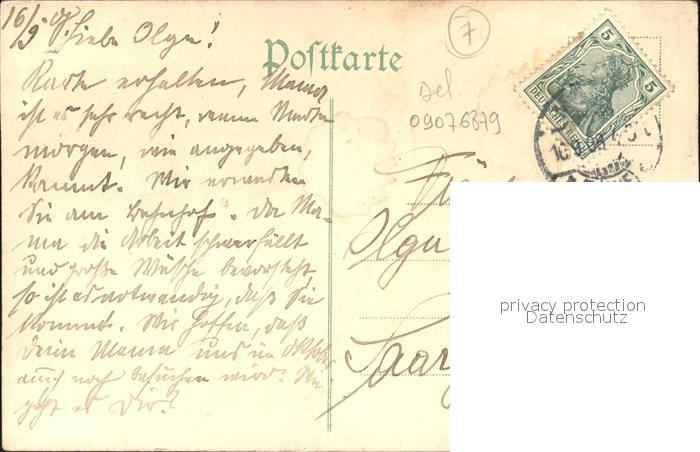 16/9 Liebe Olga!
Karte erhalten, Mama
ist es sehr recht, wenn Martha
morgen, wie angegeben,
kommt. Wir erwarten
Sie am Bahnhof. Da Ma-
ma die Arbeit schwerfällt
und große Wäsche bevorsteht,
so ist es notwendig, daß Sie
kommt. Wir hoffen, daß
Deine Mama uns im Oktober
auch noch besuchen wird. Wie
geht es Dir?
Postkarte
7
09076379
5
5
DEUTSCHES REICH
Für
Olga
Saar
privacy protection
Datenschutz